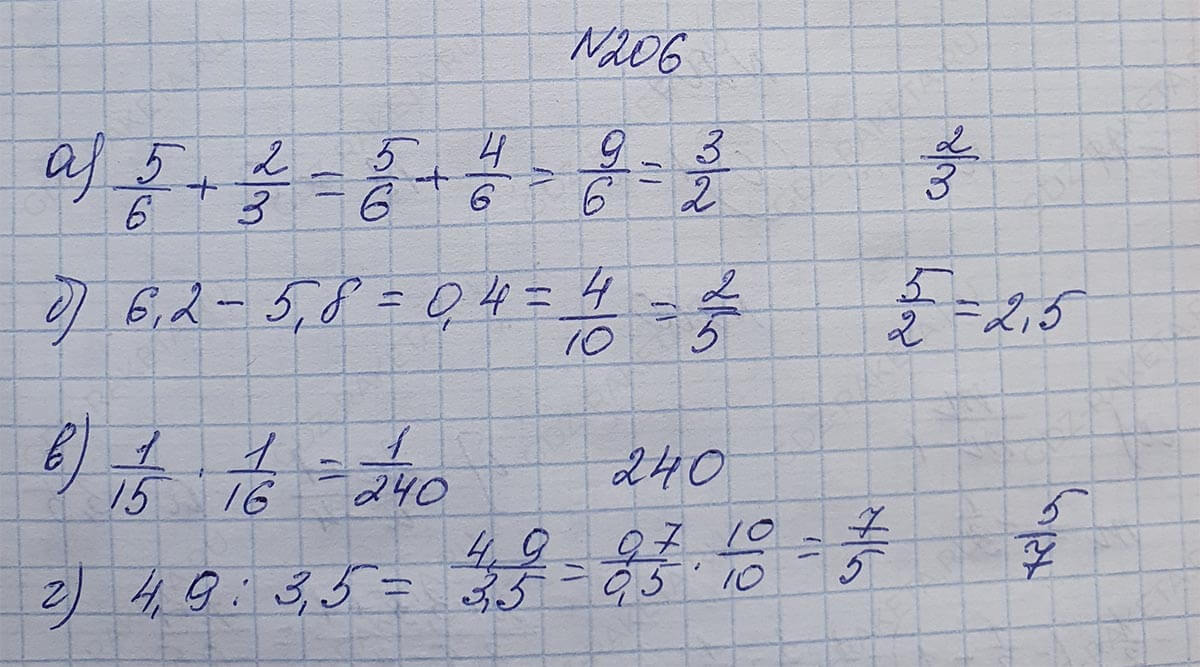 N206
а) 5/6 + 2/3 = 5/6 + 4/6 = 9/6 = 3/2 2/3
б) 6,2 - 5,8 = 0,4 = 4/10 = 2/5 5/2 = 2,5
в) 1/15 · 1/16 = 1/240 240
г) 4,9 : 3,5 = 4,9/3,5 = 0,7/0,5 · 10/10 = 7/5 5/7